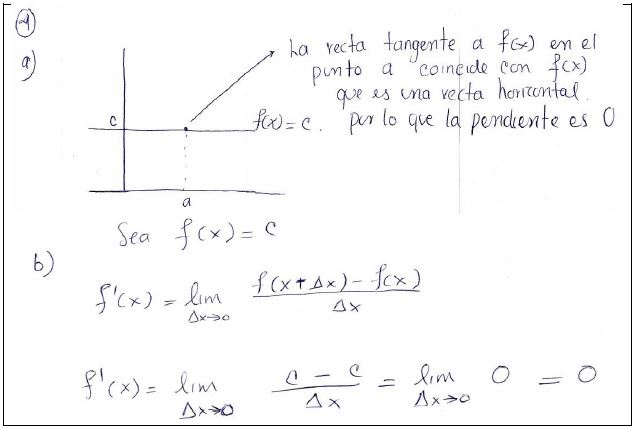 4
a)
La recta tangente a f(x) en el
punto a coincide con f(x)
que es una recta horizontal.
c
f(x) = c. por lo que la pendiente es 0
a
Sea f(x) = c
b)
f'(x) = lim Δx→0 f(x + Δx) - f(x) / Δx
f'(x) = lim Δx→0 c - c / Δx = lim Δx→0 0 = 0